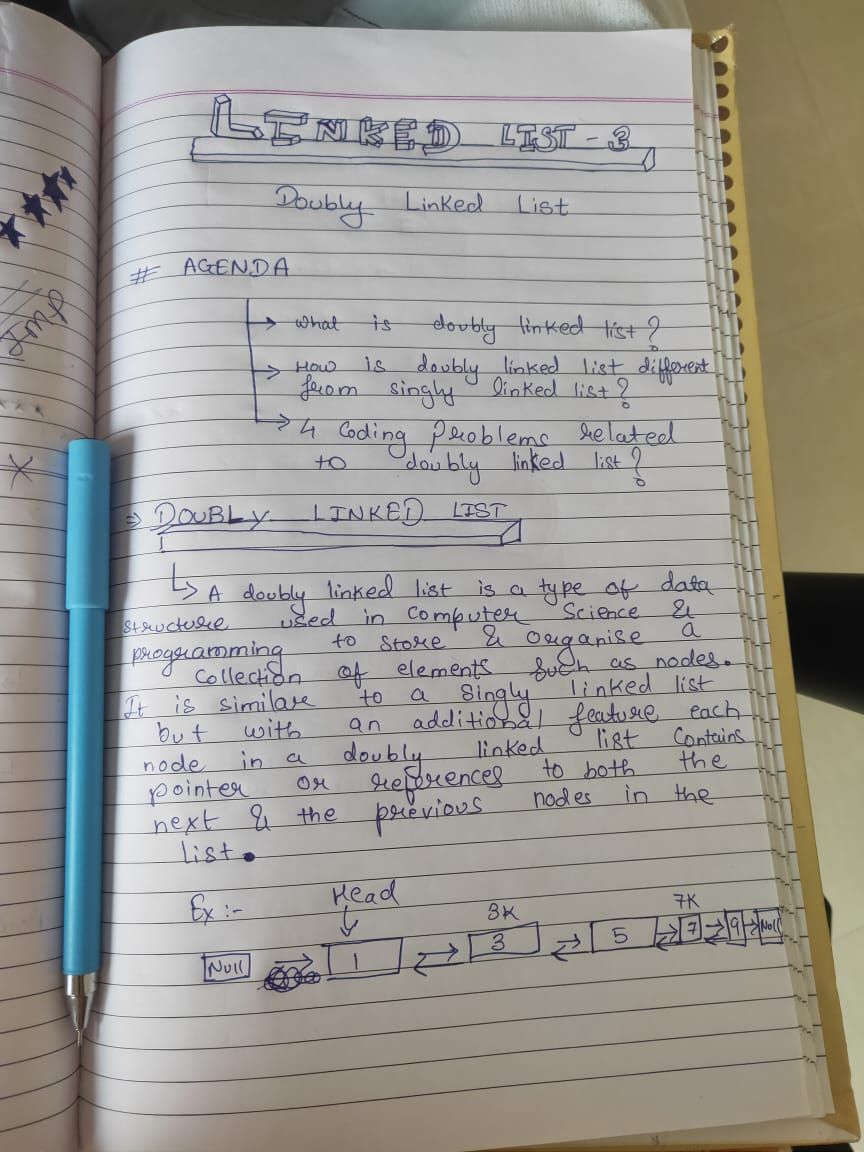 LINKED LIST - 3
Doubly Linked List
# AGENDA
→ What is doubly linked list?
→ How is doubly linked list different
from singly linked list?
→ 4 Coding Problems related
to doubly linked list?
⇒ DOUBLY LINKED LIST
↳ A doubly linked list is a type of data
structure used in Computer Science &
programming to store & organise a
Collection of elements such as nodes.
It is similar to a singly linked list
but with an additional feature each
node in a doubly linked list Contains
pointer or references to both the
next & the previous nodes in the
list.
Ex :- Head
3K 7K
Null 1 3 5 7 9 Null
Imp